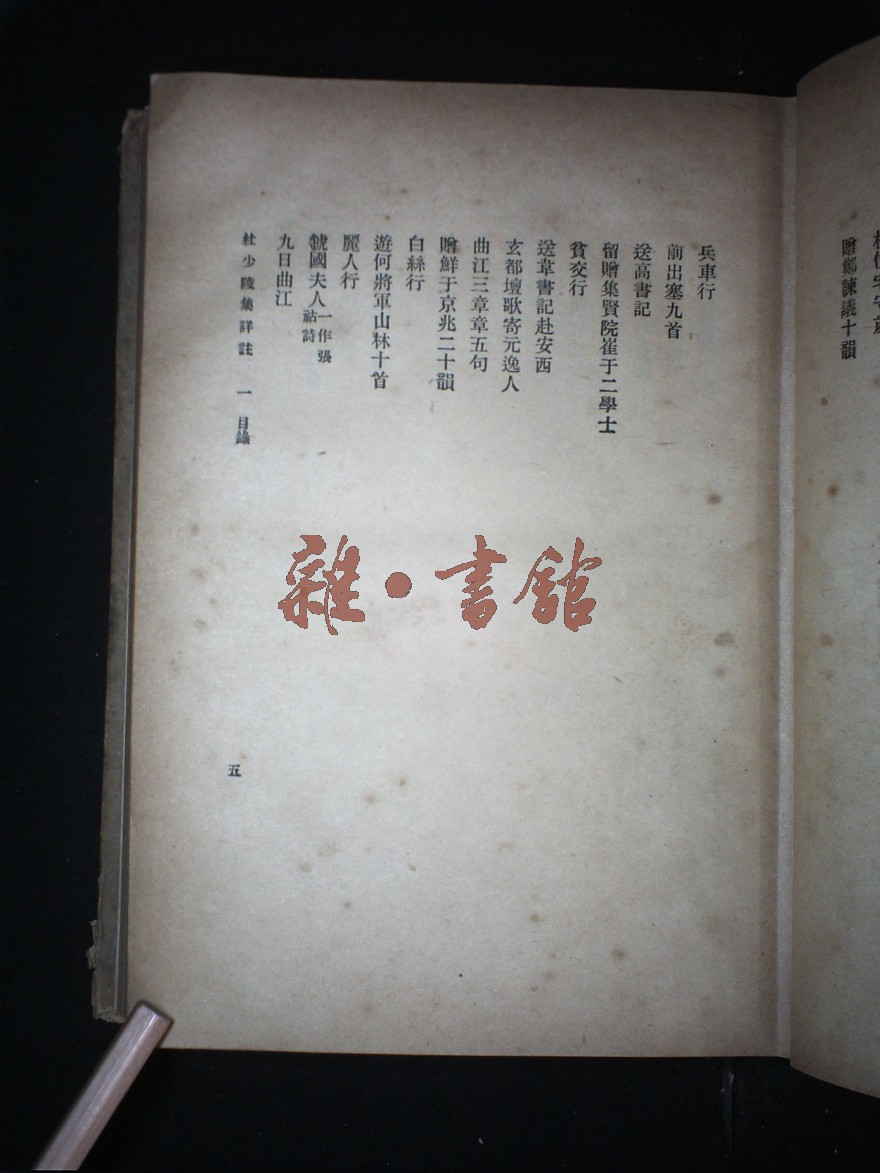 贈鄭諫議十韻
兵車行
前出塞九首
送高書記
留贈集賢院崔于二學士
貧交行
送韋書記赴安西
玄都壇歌寄元逸人
曲江三章章五句
贈鮮于京兆二十韻
白絲行
遊何將軍山林十首
麗人行
虢國夫人一作張祜詩
九日曲江
杜少陵集詳註 一 目錄
五
雜·書館